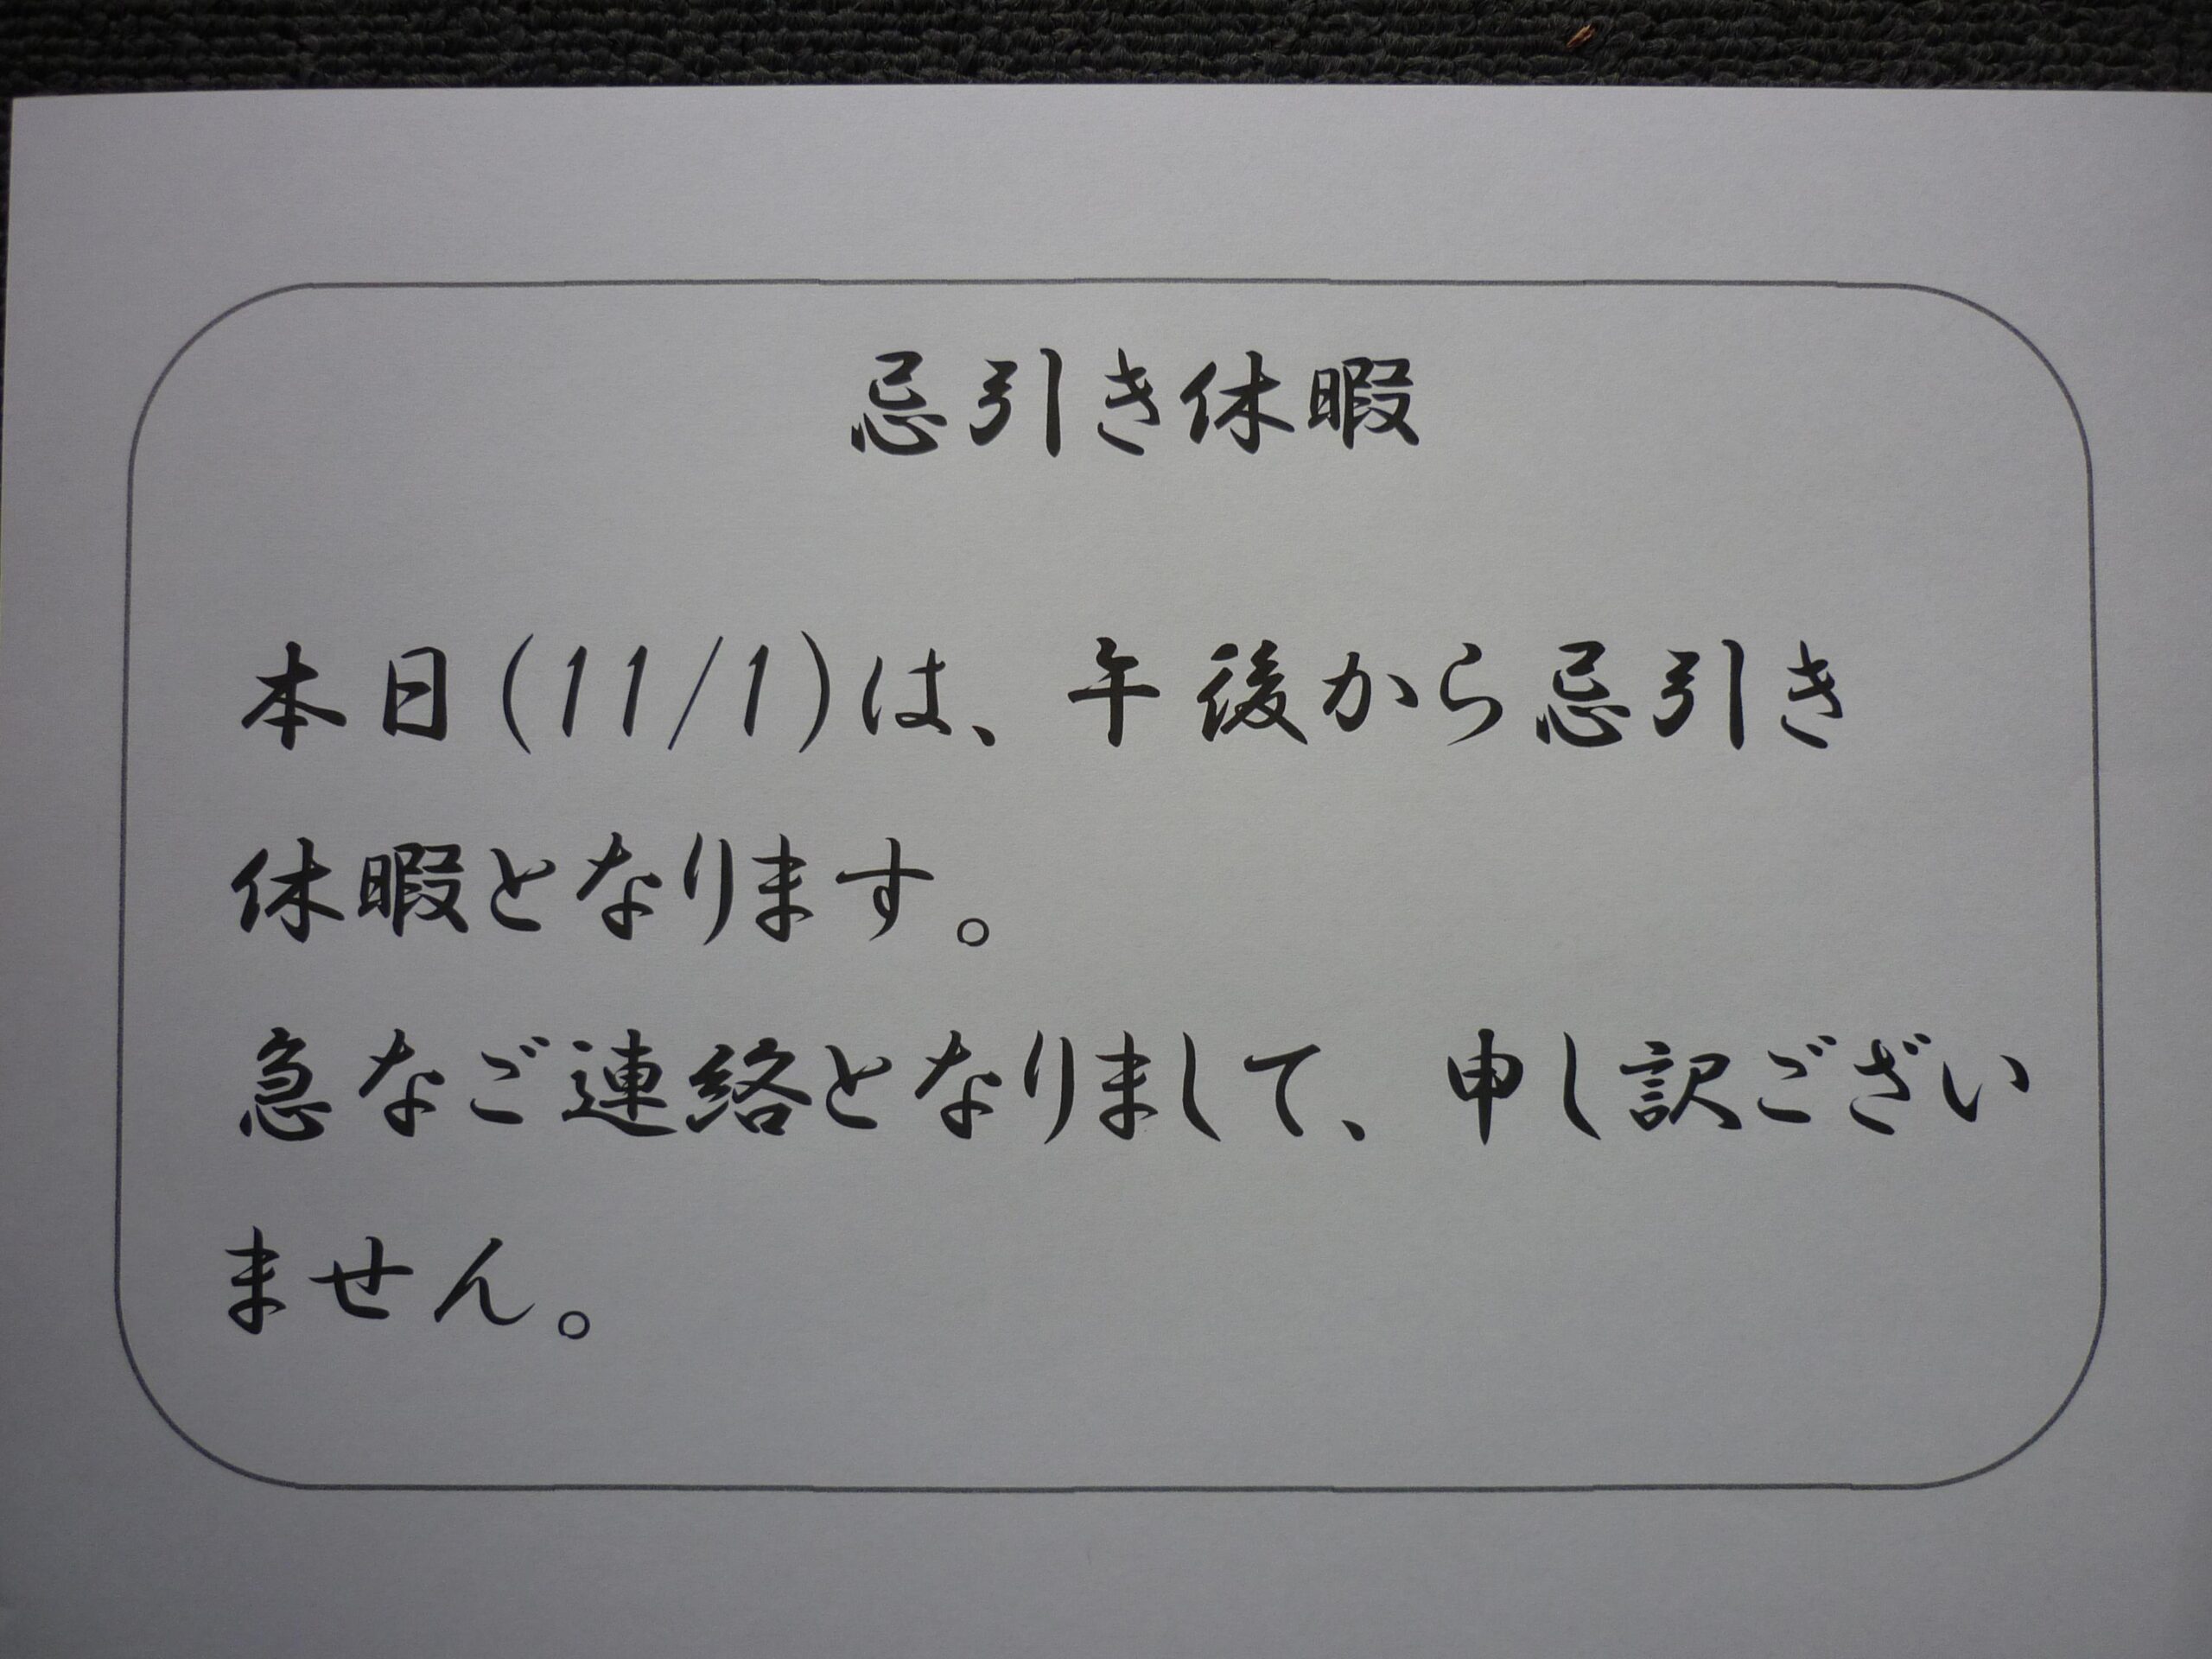 忌引き休暇
本日(11/1)は、午後から忌引き
休暇となります。
急なご連絡となりまして、申し訳ござい
ません。